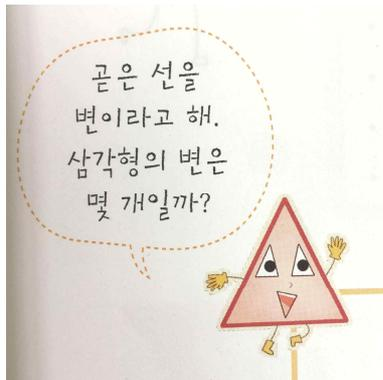 곧은 선을
변이라고 해.
삼각형의 변은
몇 개일까?